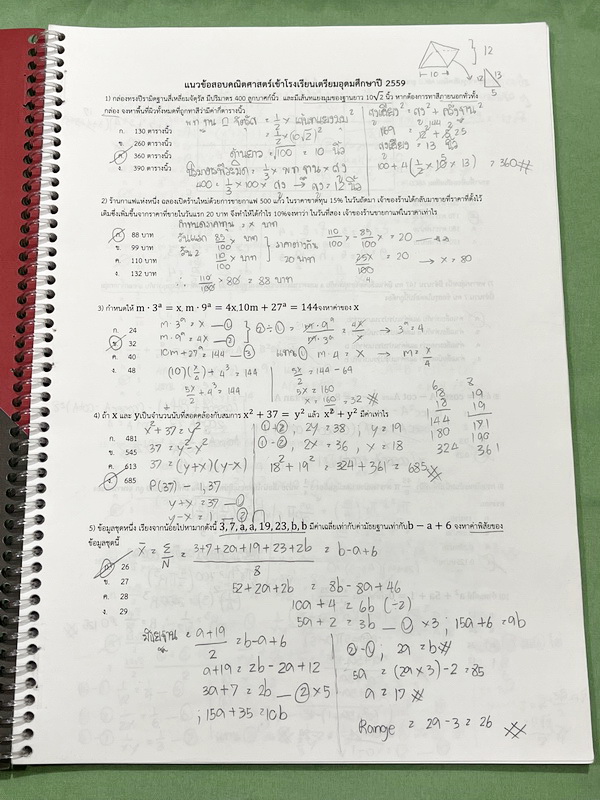 แนวข้อสอบคณิตศาสตร์เข้าโรงเรียนเตรียมอุดมศึกษาปี 2559
1) กล่องทรงปิรามิดฐานสี่เหลี่ยมจัตุรัส มีปริมาตร 400 ลูกบาศก์นิ้ว และมีเส้นทแยงมุมของฐานยาว 10√2 นิ้ว หากต้องการทาสีภายนอกทั่วทั้ง
กล่อง จงหาพื้นที่ผิวทั้งหมดที่ถูกทาสีว่ามีค่ากี่ตารางนิ้ว
ก. 130 ตารางนิ้ว
ข. 260 ตารางนิ้ว
ค. 360 ตารางนิ้ว
ง. 390 ตารางนิ้ว
10
12
12
13
5
พท ฐาน □ จัตุรัส = 1/2 × เส้นทแยงมุม²
= 1/2 × (10√2)²
ด้านยาว = √100 = 10 นิ้ว
ปริมาตรพีระมิด = 1/3 × พท ฐาน × สูง
400 = 1/3 × 100 × สูง → สูง = 12 นิ้ว
สูงเอียง = 13 นิ้ว
100 + 4(1/2 × 10 × 13) = 360 #
2) ร้านกาแฟแห่งหนึ่ง ฉลองเปิดร้านใหม่ด้วยการขายกาแฟ 500 แก้ว ในราคาขาดทุน 15% ในวันถัดมา เจ้าของร้านได้กลับมาขายที่ราคาที่ตั้งไว้
เดิมซึ่งเพิ่มขึ้นจากราคาที่ขายในวันแรก 20 บาท จึงทำให้ได้กำไร 10%จงหาว่า ในวันที่สอง เจ้าของร้านขายกาแฟในราคาเท่าไร
ก. 88 บาท
ข. 99 บาท
ค. 110 บาท
ง. 132 บาท
กำหนดต้นทุน = x บาท
วันแรก 85/100 x บาท
วัน 2 110/100 x บาท
ราคาต่างกัน
20 บาท
∴ 110/100 × 80 = 88 บาท
110/100 x - 85/100 x = 20
25x/100 = 20 → x = 80
3) กำหนดให้ m · 3ᵃ = x, m · 9ᵃ = 4x,10m + 27ᵃ = 144จงหาค่าของ x
ก. 24
ข. 32
ค. 40
ง. 48
m · 3ᵃ = x — ①
m · 9ᵃ = 4x — ②
10m + 27ᵃ = 144 — ③
(10)(x/4) + 4³ = 144
5x/2 + 4³ = 144
② ÷ ① = m · 9ᵃ/m · 3ᵃ = 4x/x → 3ᵃ = 4
แทน ① m · 4 = x → m = x/4
5x/2 = 144 - 64
5x = 160
x = 160/5 = 32 #
4) ถ้า x และ yเป็นจำนวนนับที่สอดคล้องกับสมการ x² + 37 = y² แล้ว x² + y² มีค่าเท่าไร
ก. 481
ข. 545
ค. 613
ง. 685
x² + 37 = y²
37 = y² - x²
37 = (y+x)(y-x)
P(37) - 1, 37
y + x = 37 — ①
y - x = 1 — ②
① + ②, 2y = 38, y = 19
① - ②, 2x = 36, x = 18
18² + 19² = 324 + 361 = 685 #
18
18
144
180
324
19
19
171
190
361
5) ข้อมูลชุดหนึ่ง เรียงจากน้อยไปหามากดังนี้ 3, 7, a, a, 19, 23, b, b มีค่าเฉลี่ยเท่ากับค่ามัธยฐานเท่ากับb − a + 6 จงหาค่าพิสัยของ
ข้อมูลชุดนี้
ก. 26
ข. 27
ค. 28
ง. 29
x̄ = Σ/N = 3+7+2a+19+23+2b/8 = b-a+6
52 + 2a + 2b = 8b - 8a + 46
10a + 4 = 6b (÷2)
5a + 2 = 3b — ① ×3 ; 15a + 6 = 9b
มัธยฐาน = a+19/2 = b-a+6
a+19 = 2b - 2a + 12
3a + 7 = 2b — ② ×5
; 15a + 35 = 10b
② - ① ; 29 = b #
5a = (29×3) - 2 = 85
a = 17 #
Range = 29 - 3 = 26 #